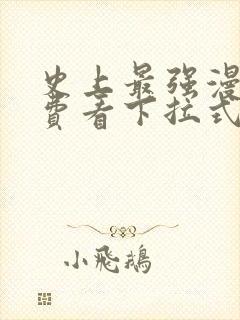 史上最强漫
费看下拉式
小飛鵝